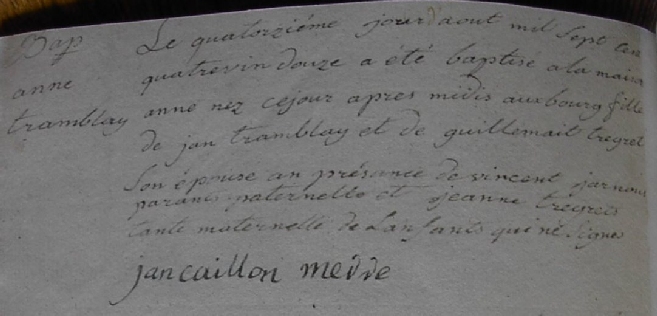 Bap
anne
tramblay
Le quatorziéme jour d'aout mil sept cen
quatrevin douze a été baptisé a la maison
anne nez cejour apres midis aux bourg fille
de jan tramblay et de guillemait tregret
son épouse an présance de vincent jarnoux
parans paternelle et jeanne tregret
tante maternelle de Lanfants qui né Signe
jancaillon medde